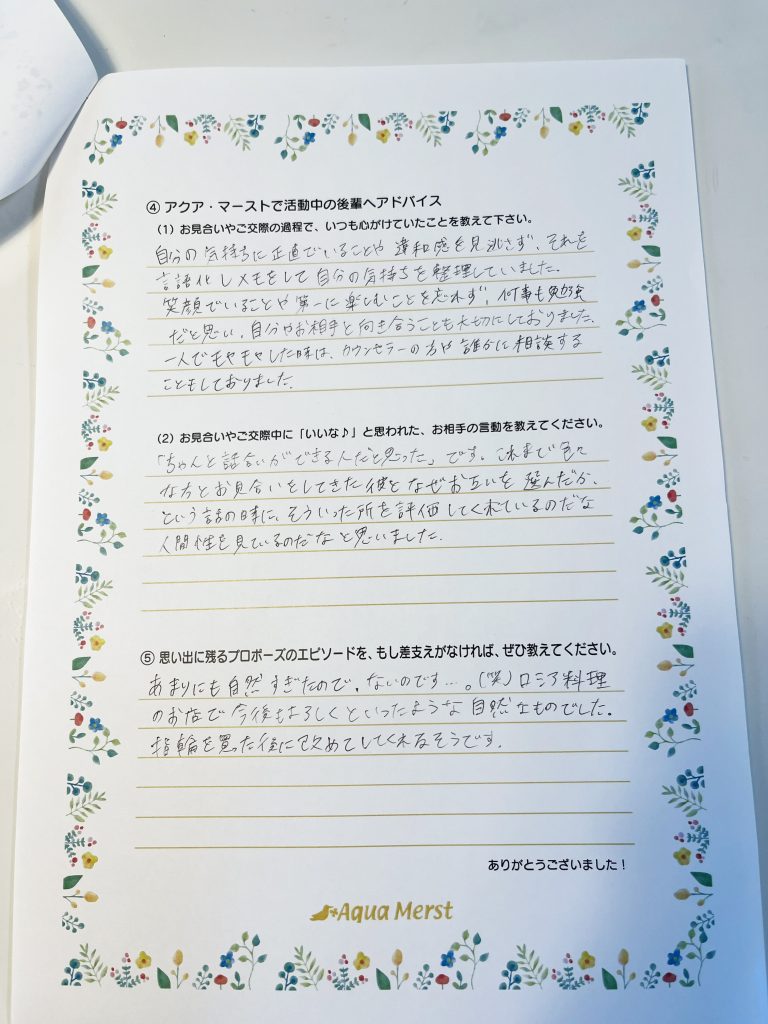 ④ アクア・マーストで活動中の後輩へアドバイス
(1) お見合いやご交際の過程で、いつも心がけていたことを教えて下さい。
自分の気持ちに正直でいることや違和感を見逃さず、それを
言語化しメモをして自分の気持ちを整理していました。
笑顔でいることや第一に楽しむことを忘れず、何事も勉強
だと思い、自分やお相手と向き合うことも大切にしておりました。
一人でモヤモヤした時は、カウンセラーの方や誰かに相談する
こともしておりました。
(2) お見合いやご交際中に「いいな♪」と思われた、お相手の言動を教えてください。
「ちゃんと話合いができる人だと思った」です。これまで色々
な方とお見合いをしてきた彼となぜお互いを選んだか、
という話の時に、そういった所を評価してくれているのだな
人間性を見ているのだなと思いました。
⑤ 思い出に残るプロポーズのエピソードを、もし差支えがなければ、ぜひ教えてください。
あまりにも自然すぎたので、ないのです…。(笑)ロシア料理
のお店で今後もよろしくといったような自然なものでした。
指輪を買った後に改めてしてくれるそうです。
ありがとうございました!
Aqua Merst